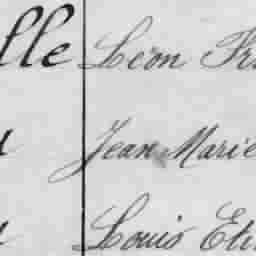 lle Léon Fr
Jean Marie
Louis Eti